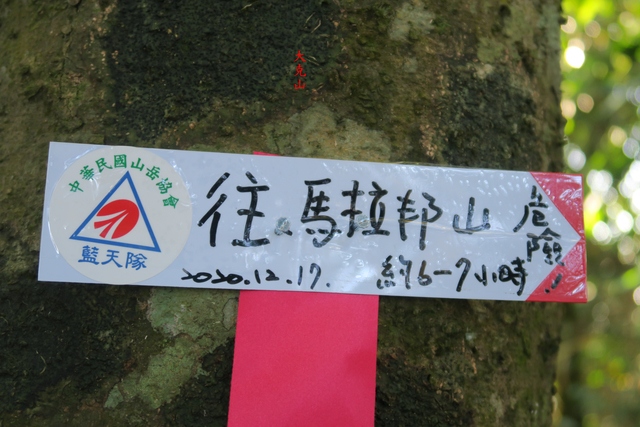 大克山
中華民國山岳協會
藍天隊
往馬拉邦山
危險!
2020.12.17. 約6-7小時